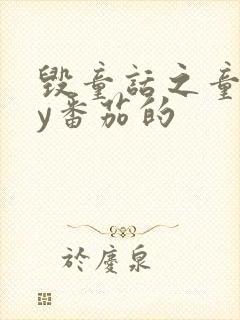 毁童话之童
y番茄的
於慶泉